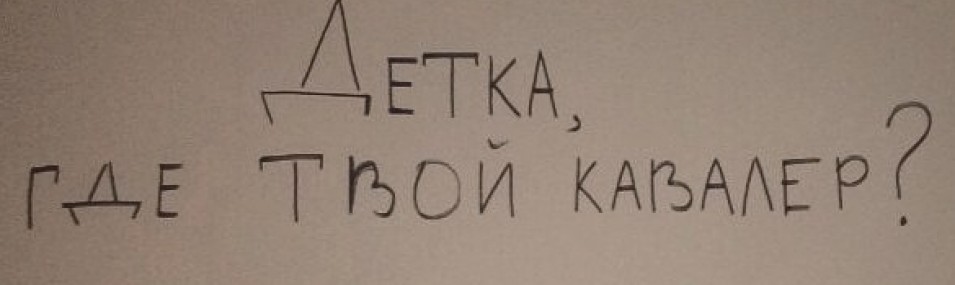 Детка,
где твой кавалер?